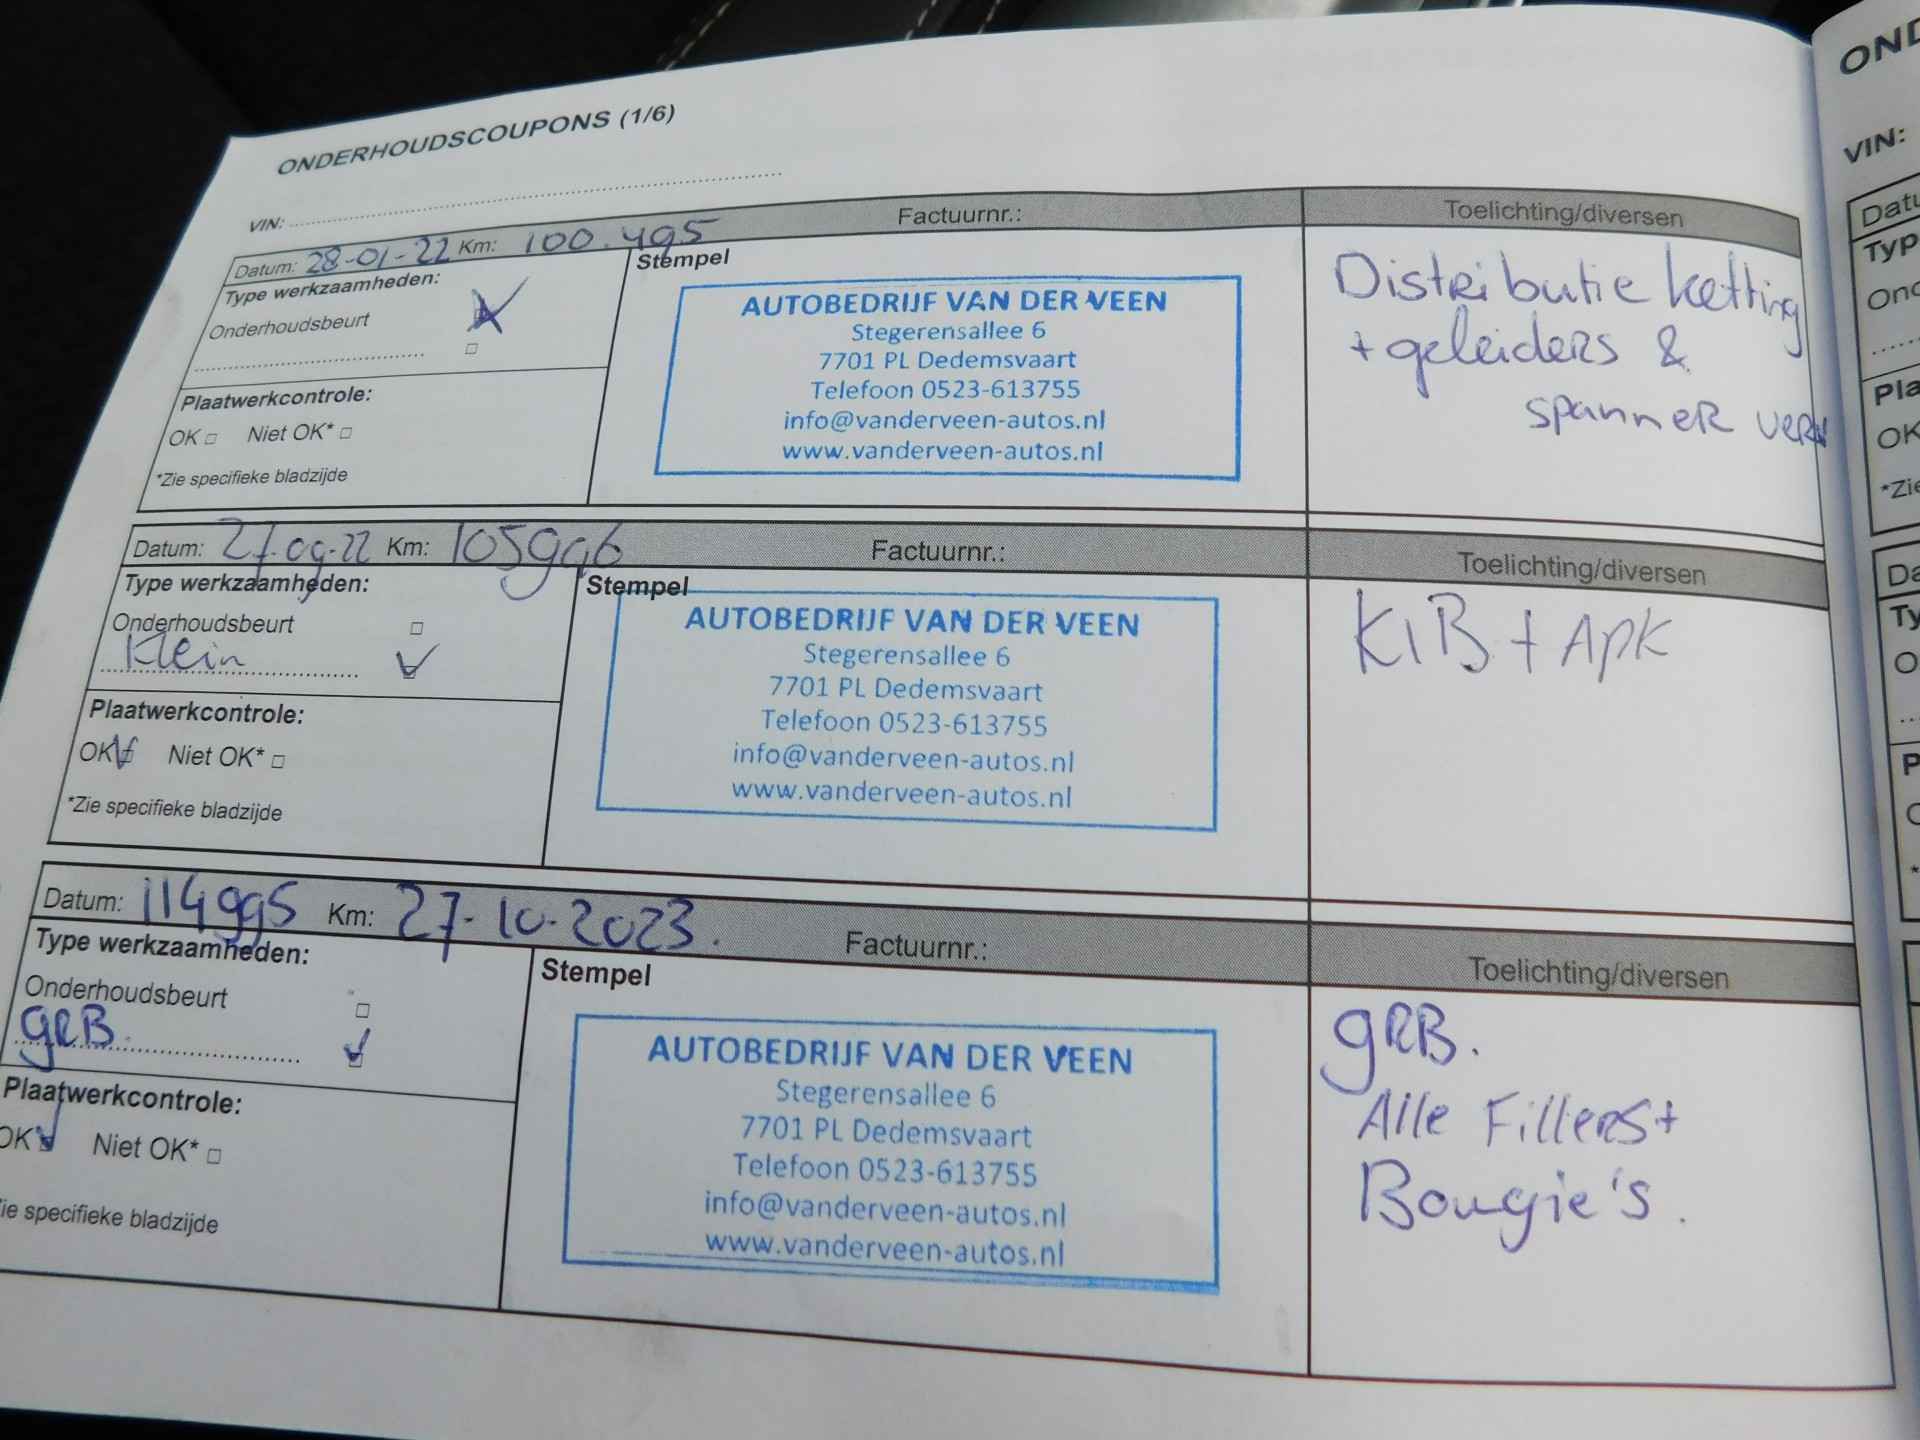 ONDERHOUDSCOUPONS (1/6)
VIN:
Datum: 28-01-22 Km: 100.495 Factuurnr.: Toelichting/diversen
Type werkzaamheden:
Onderhoudsbeurt
Plaatwerkcontrole:
OK Niet OK*
*Zie specifieke bladzijde
Stempel
AUTOBEDRIJF VAN DER VEEN
Stegerensallee 6
7701 PL Dedemsvaart
Telefoon 0523-613755
info@vanderveen-autos.nl
www.vanderveen-autos.nl
Distributie ketting
+ geleiders &
spanner verv
Datum: 27-09-22 Km: 105996 Factuurnr.: Toelichting/diversen
Type werkzaamheden:
Onderhoudsbeurt
Klein
Plaatwerkcontrole:
OK Niet OK*
*Zie specifieke bladzijde
Stempel
AUTOBEDRIJF VAN DER VEEN
Stegerensallee 6
7701 PL Dedemsvaart
Telefoon 0523-613755
info@vanderveen-autos.nl
www.vanderveen-autos.nl
KlB + APK
Datum: 114995 Km: 27-10-2023. Factuurnr.: Toelichting/diversen
Type werkzaamheden:
Onderhoudsbeurt
gRB.
Plaatwerkcontrole:
OK Niet OK*
Zie specifieke bladzijde
Stempel
AUTOBEDRIJF VAN DER VEEN
Stegerensallee 6
7701 PL Dedemsvaart
Telefoon 0523-613755
info@vanderveen-autos.nl
www.vanderveen-autos.nl
gRB.
Alle Filters +
Bougie's.
OND
VIN:
Datu
Typ
Ond
Pla
OK
*Zie
Da
Ty
O
P